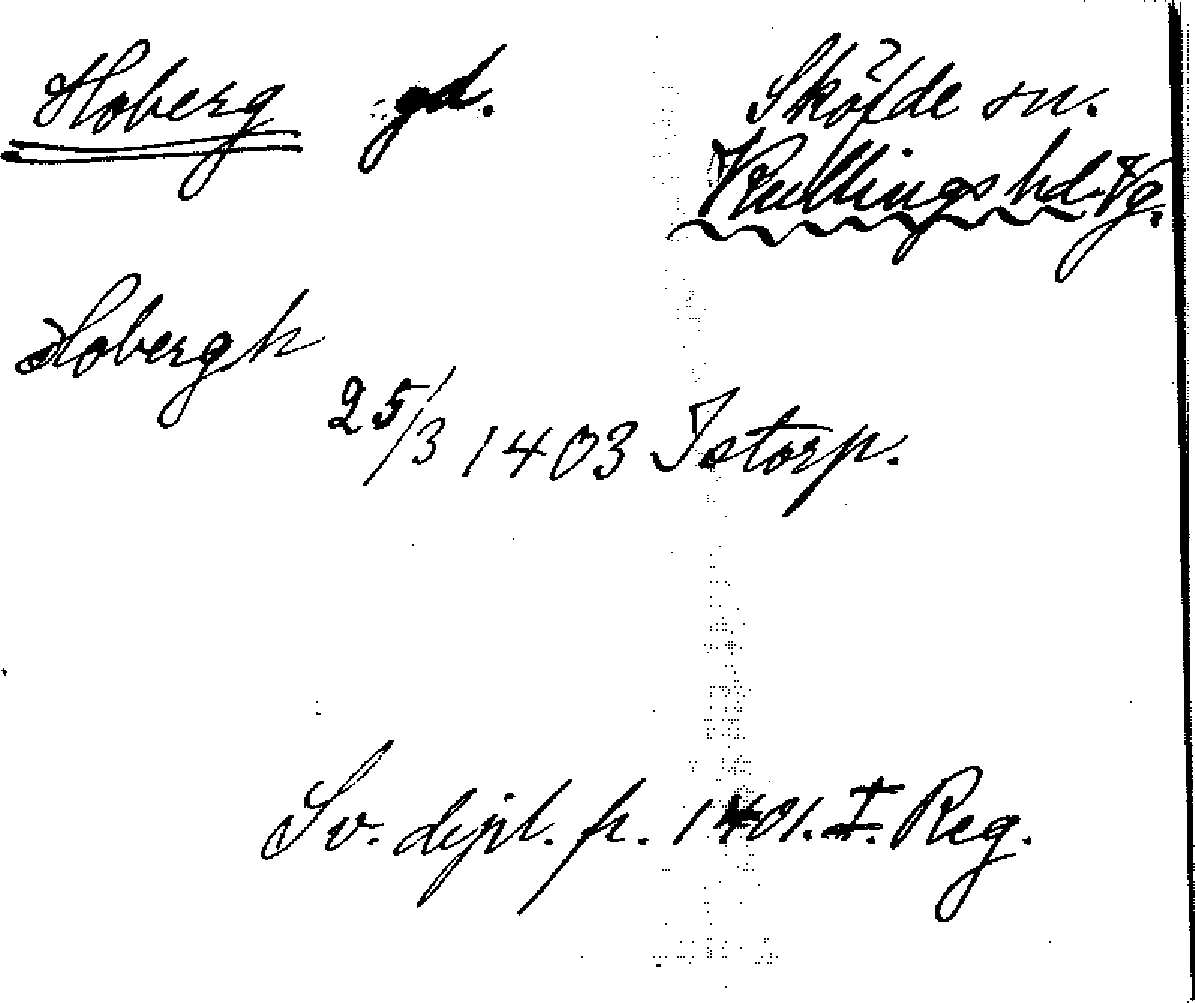 Hoberg gd. Skölde sn.
Kullings hd. Vg.
Hobergh
25/3 1403 Istorp.
Sv. dipl. fr. 1401. I. Reg.